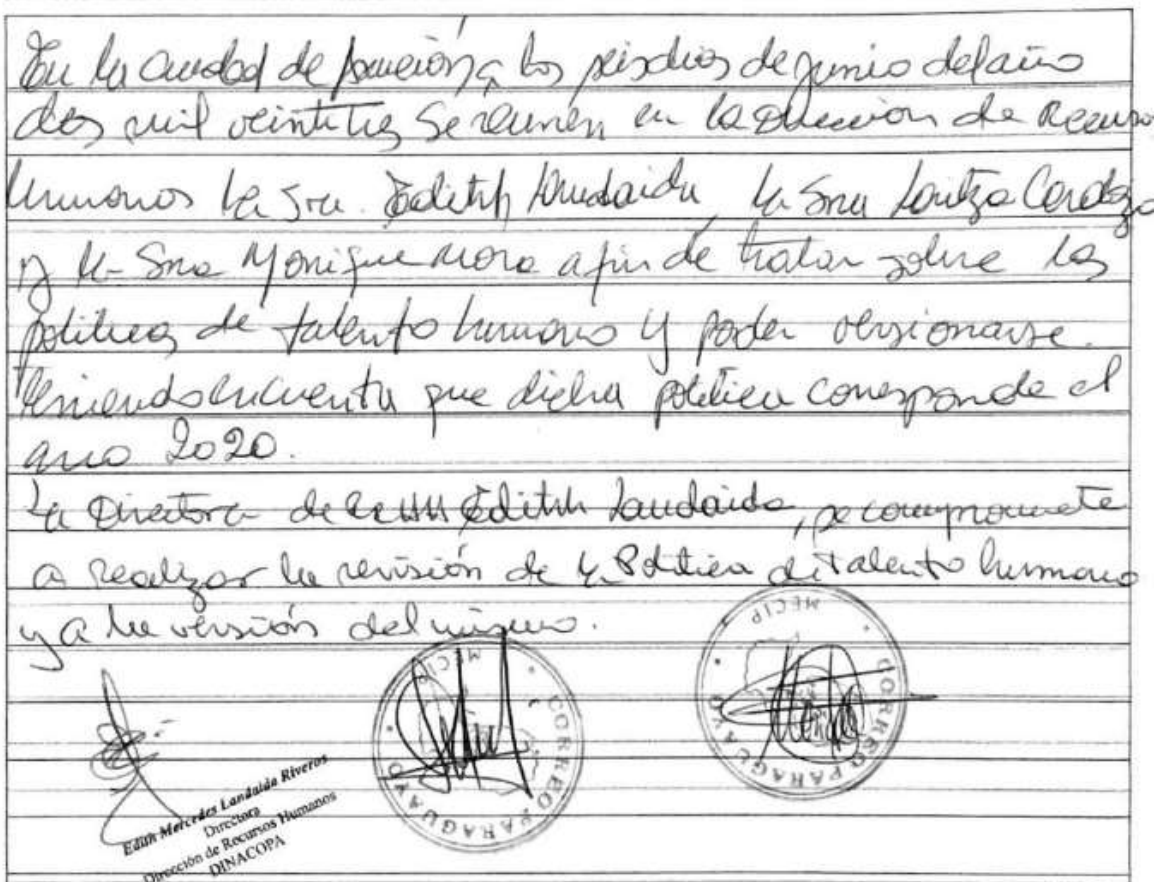 En la ciudad de Asunción, a los seis días de junio del año
dos mil veintitres se reunen en la Dirección de Recursos
Humanos la Sra. Edith Landaida, la Sra Laritza Cardozo
y la Sra Monique Mora a fin de tratar sobre las
politicas de talento humano y poder versionarse.
Teniendo en cuenta que dicha politica corresponde al
año 2020.
La Directora de RRHH Edith Landaida, se compromete
a realizar la revisión de la Politica de Talento humano
y a la versión del mismo.
MECIP
CORREO PARAGUAYO
MECIP
CORREO PARAGUAYO
Edith Mercedes Landaida Riveros
Directora
Dirección de Recursos Humanos
DINACOPA